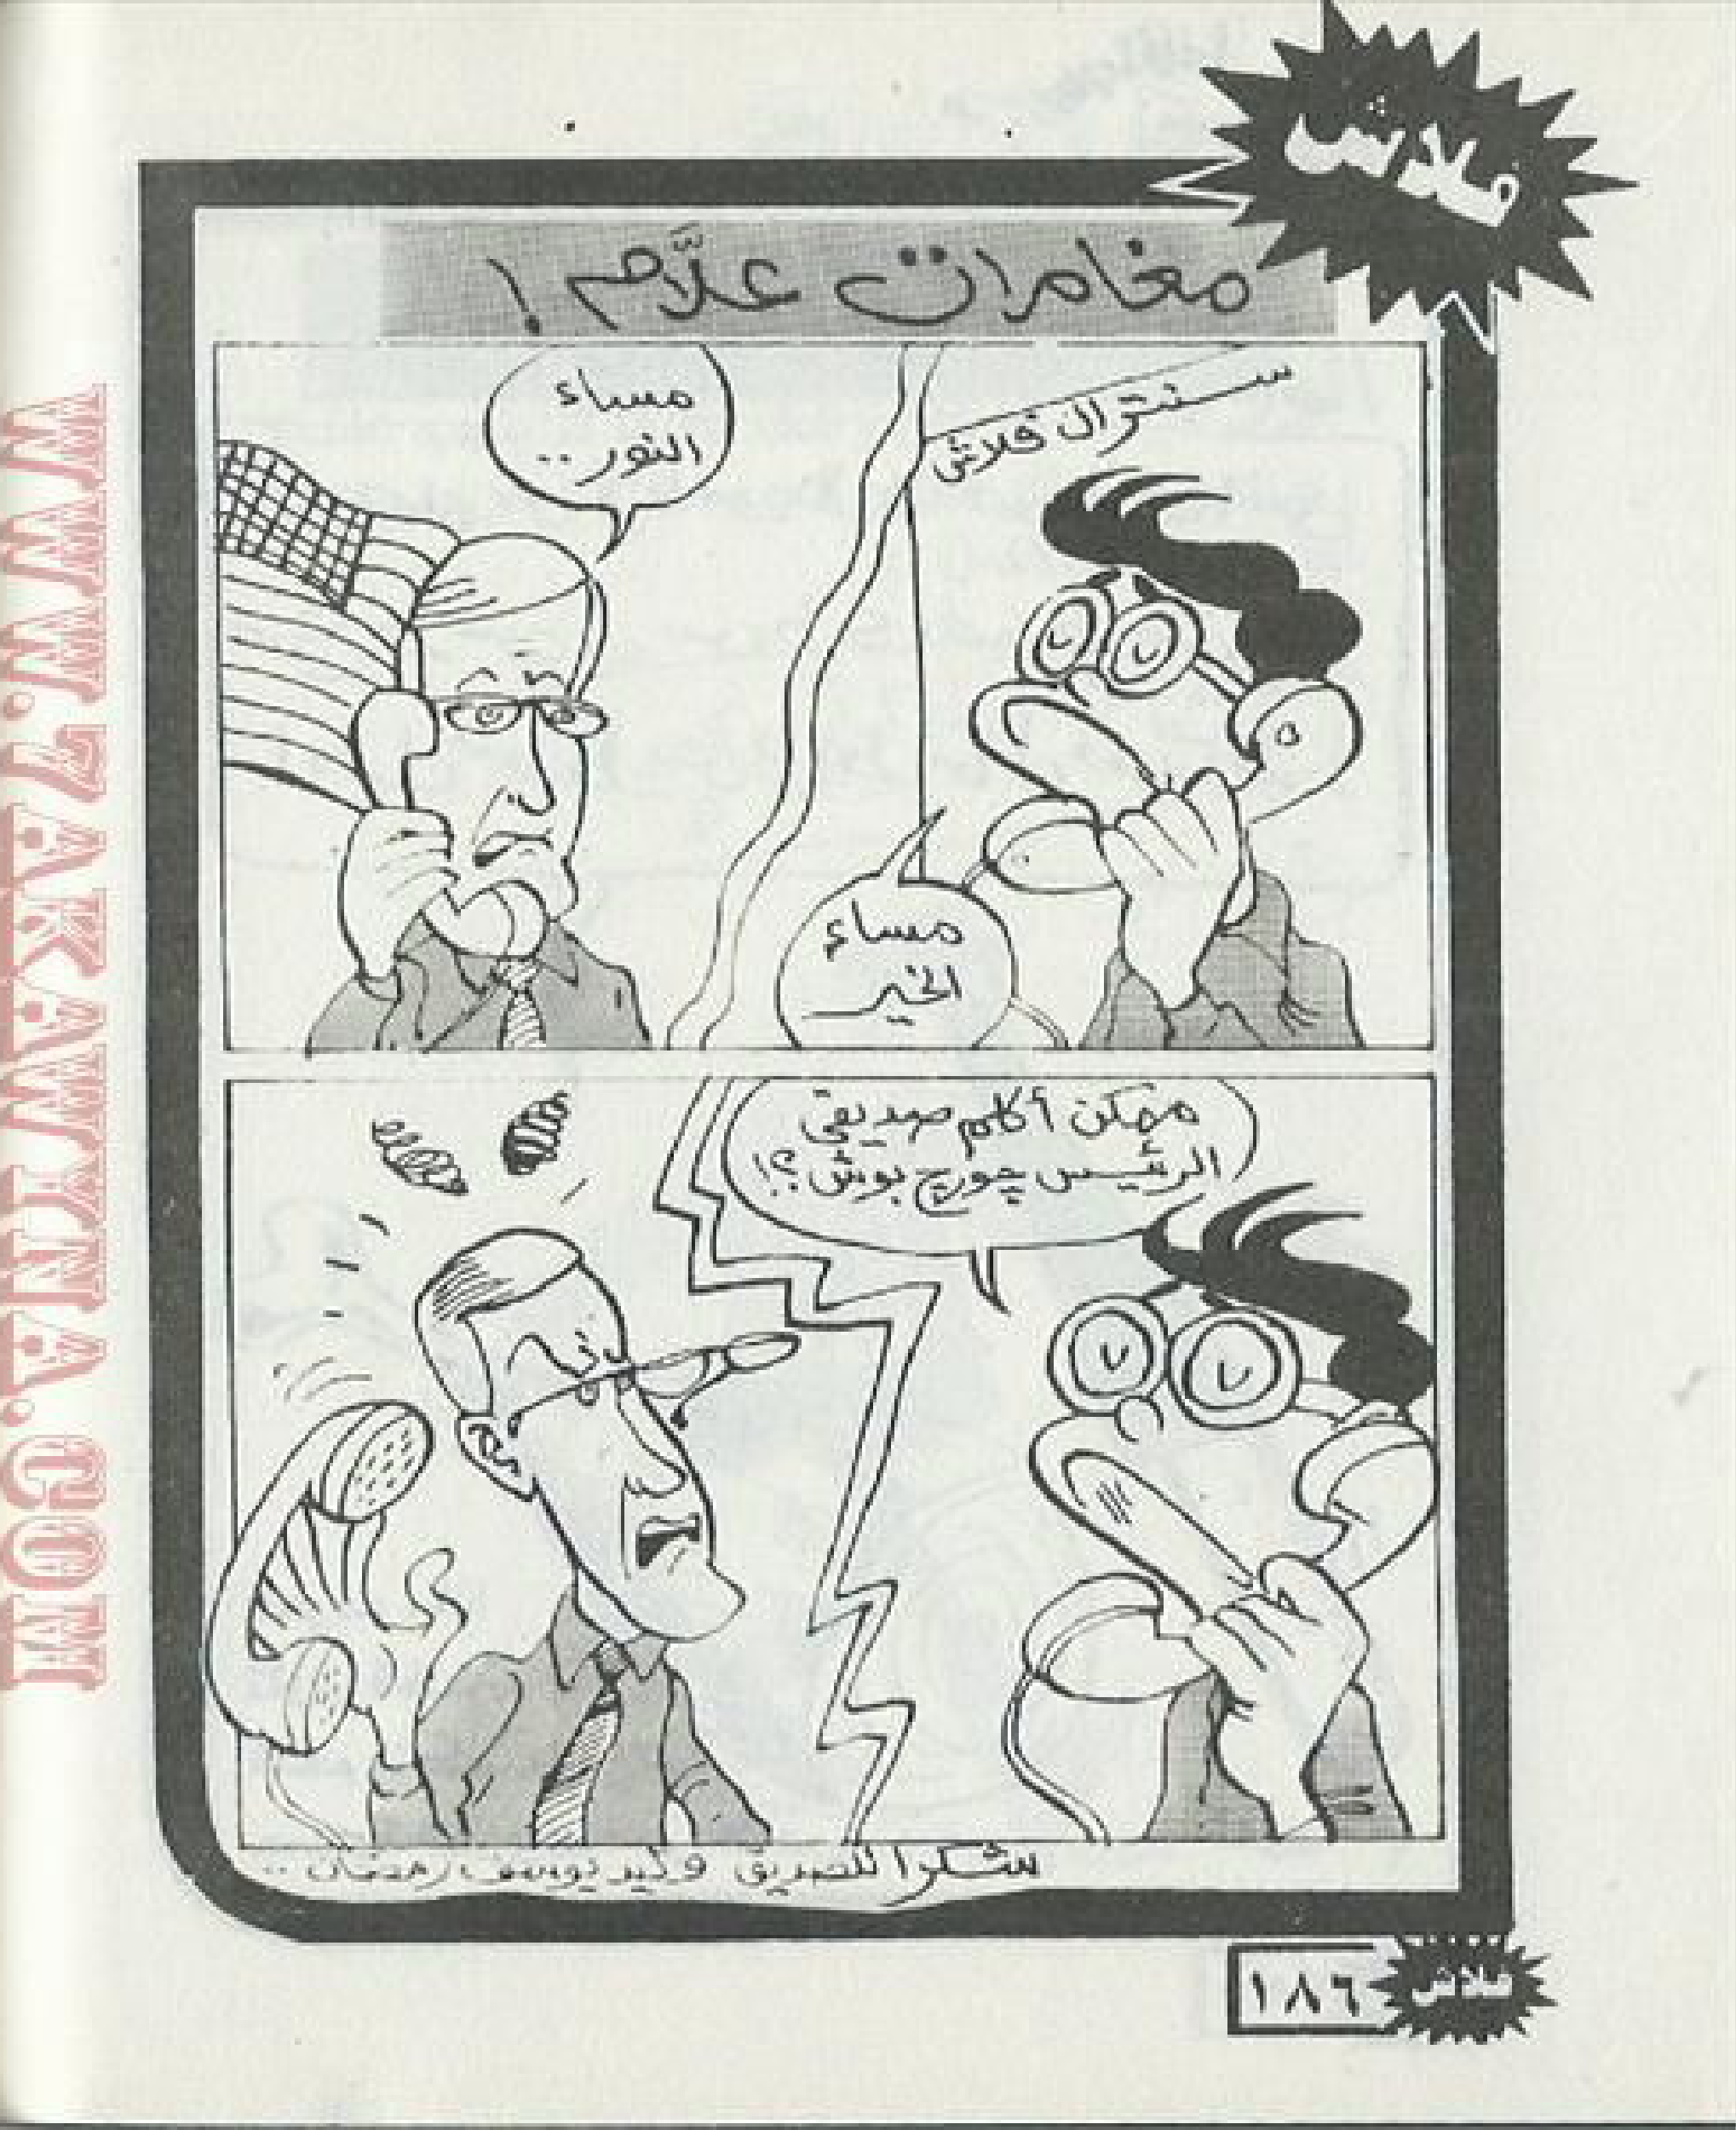 فلاش
مغامرات علَّام !
سنترال فلاش
مساء
الخير
مساء
النور..
ممكن أكلم صديقي
الرئيس چورچ بوش؟!
شكرا للصديق وليد يوسف رمضان ..
فلاش
١٨٦
WWW.7AKAWYNA.COM